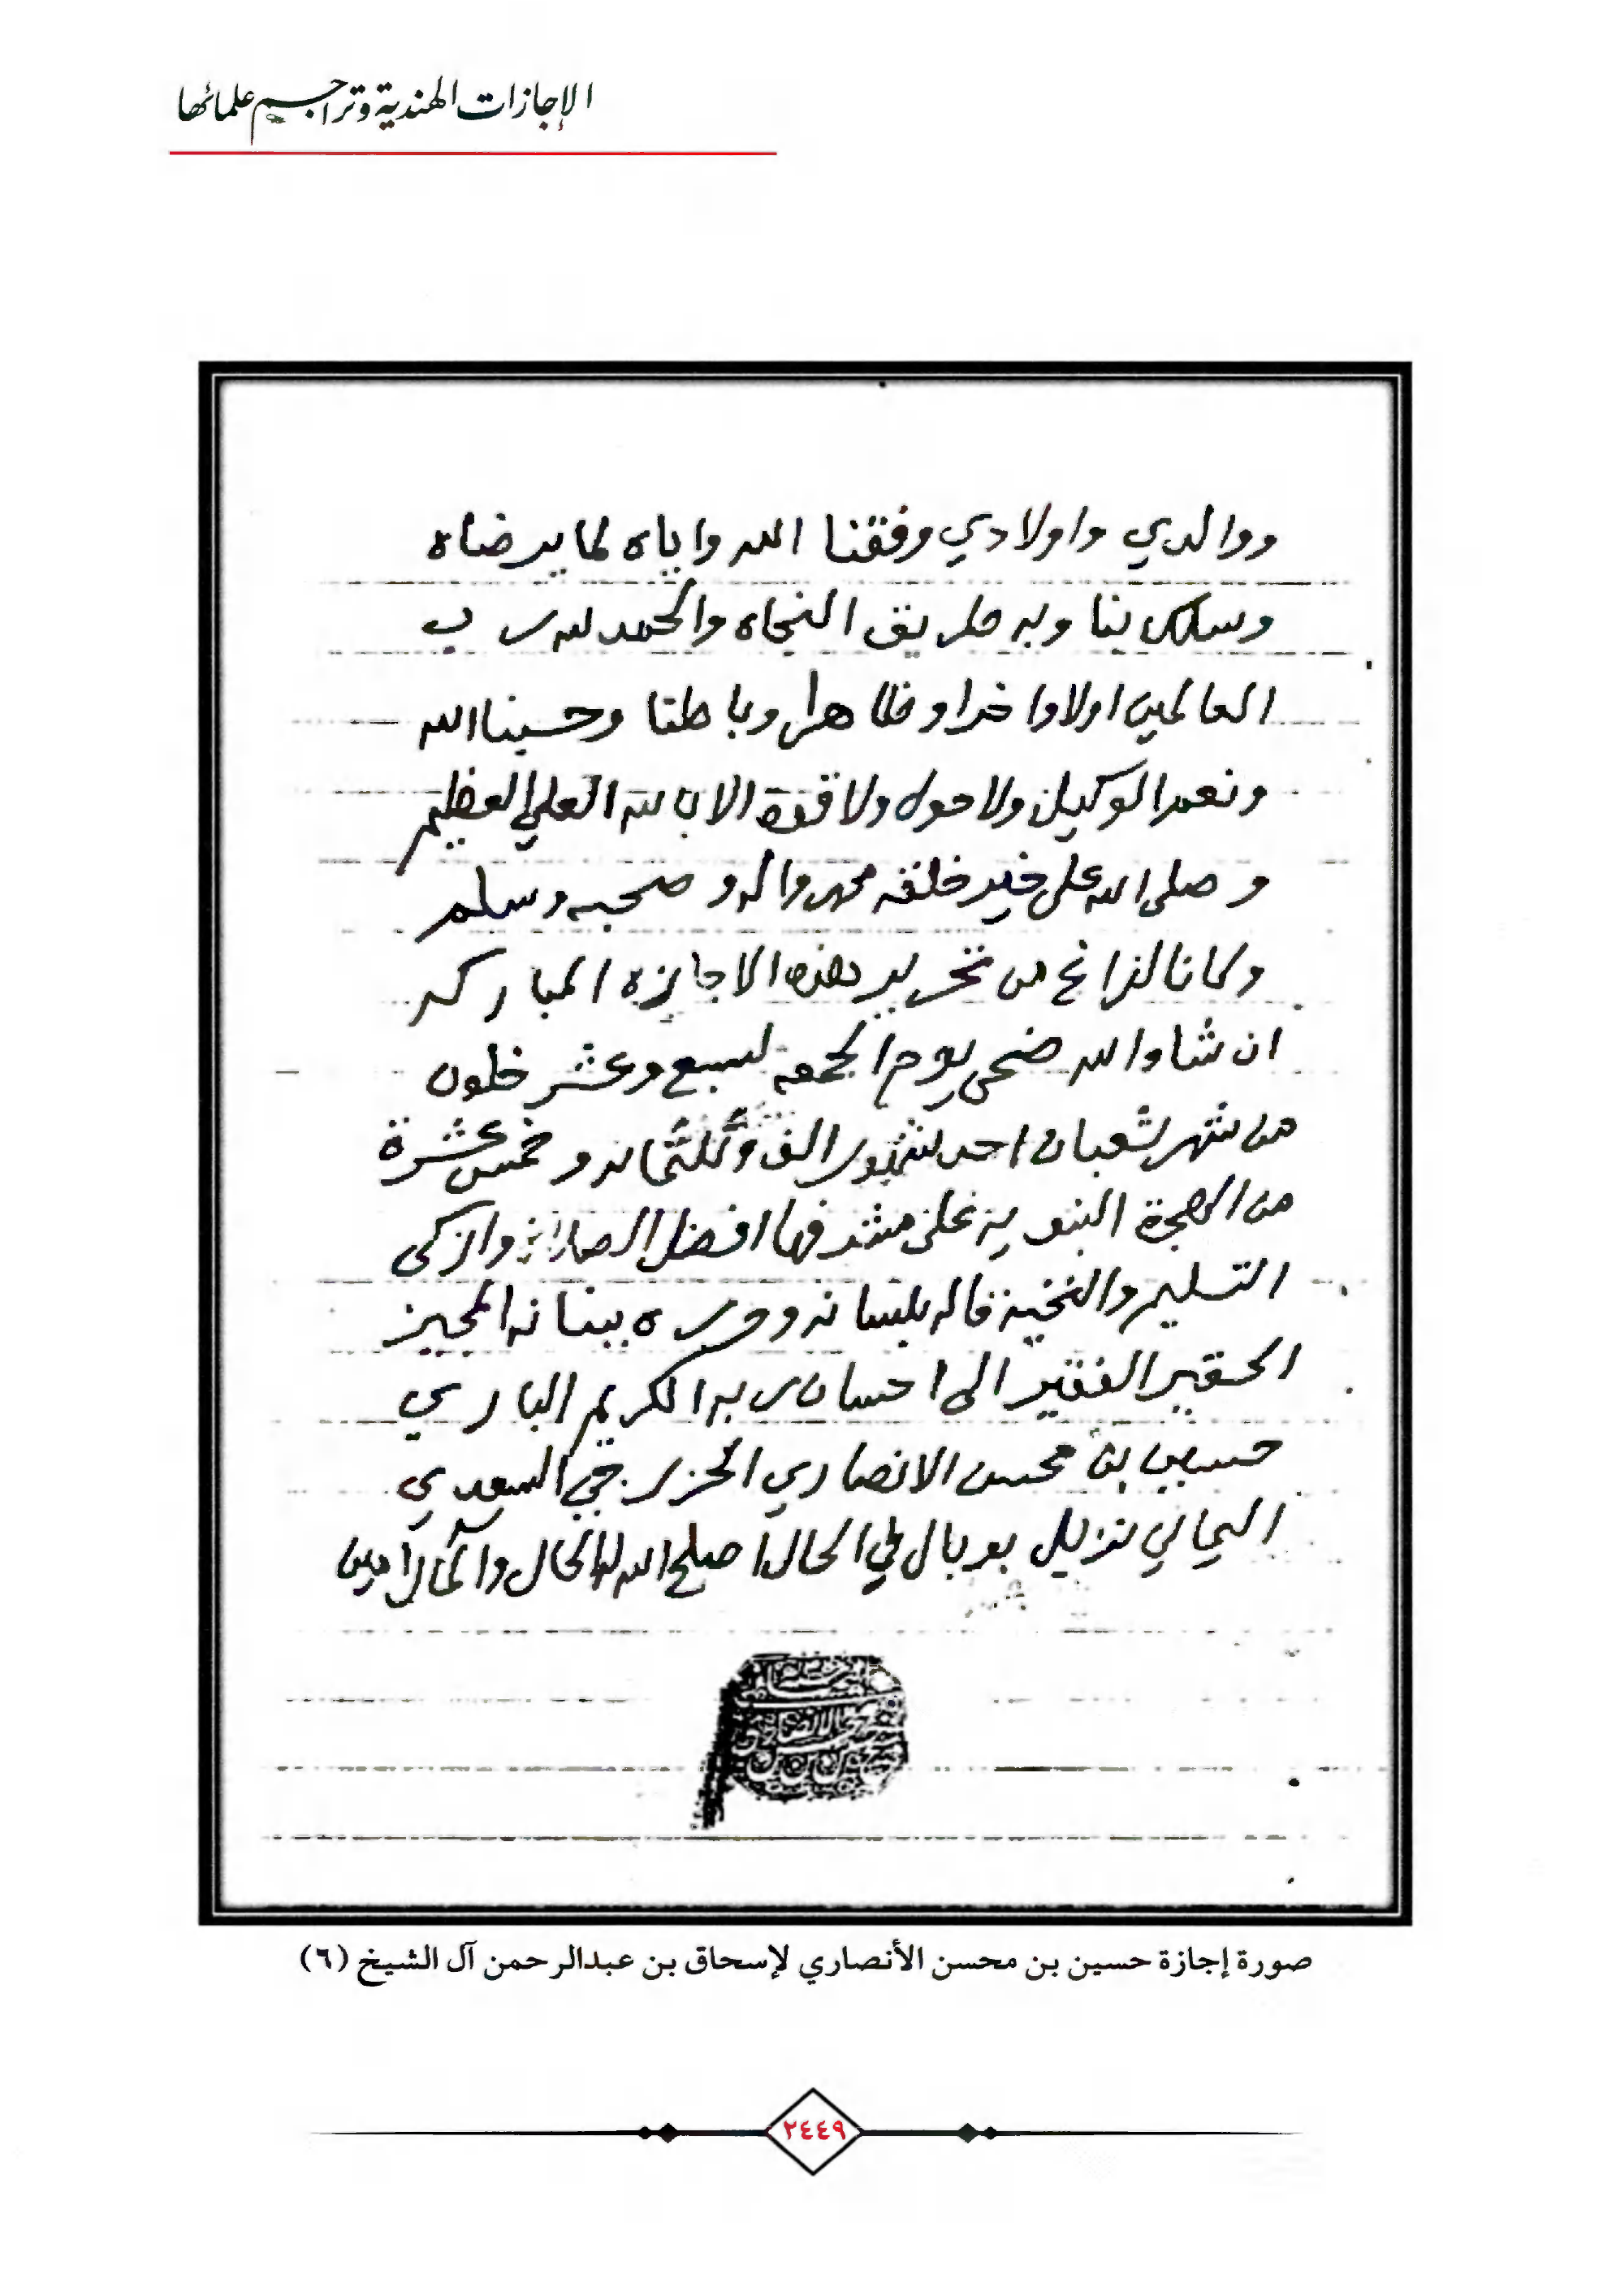 الإجازات الهندية وتراجم علمائها
ووالدي واولادي وفقنا الله واياه لما يرضاه
وسلك بنا وبه طريق النجاه والحمد لله رب
العالمين اولا واخرا وظاهرا وباطنا وحسبنا الله
ونعم الوكيل ولا حول ولا قوة الا بالله العلي العظيم
وصلى الله على خير خلقه محمد واله وصحبه وسلم
وكان الفراغ من تحرير هذه الاجازه المباركه
ان شاء الله ضحى يوم الجمعه لسبع وعشر خلون
من شهر شعبان احد شهور الف وثلثمائه وخمس عشرة
من الهجرة النبويه على مشرفها افضل الصلاة وازكى
التسليم والتحية قاله بلسانه وحرره ببنانه المجيز
الحقير الفقير الى احسان ربه الكريم الباري
حسين بن محسن الانصاري الخزرجي السعدي
اليماني نزيل بوبال في الحال اصلح الله له الحال والمآل امين
صورة إجازة حسين بن محسن الأنصاري لإسحاق بن عبدالرحمن آل الشيخ (٦)
٢٤٤٩